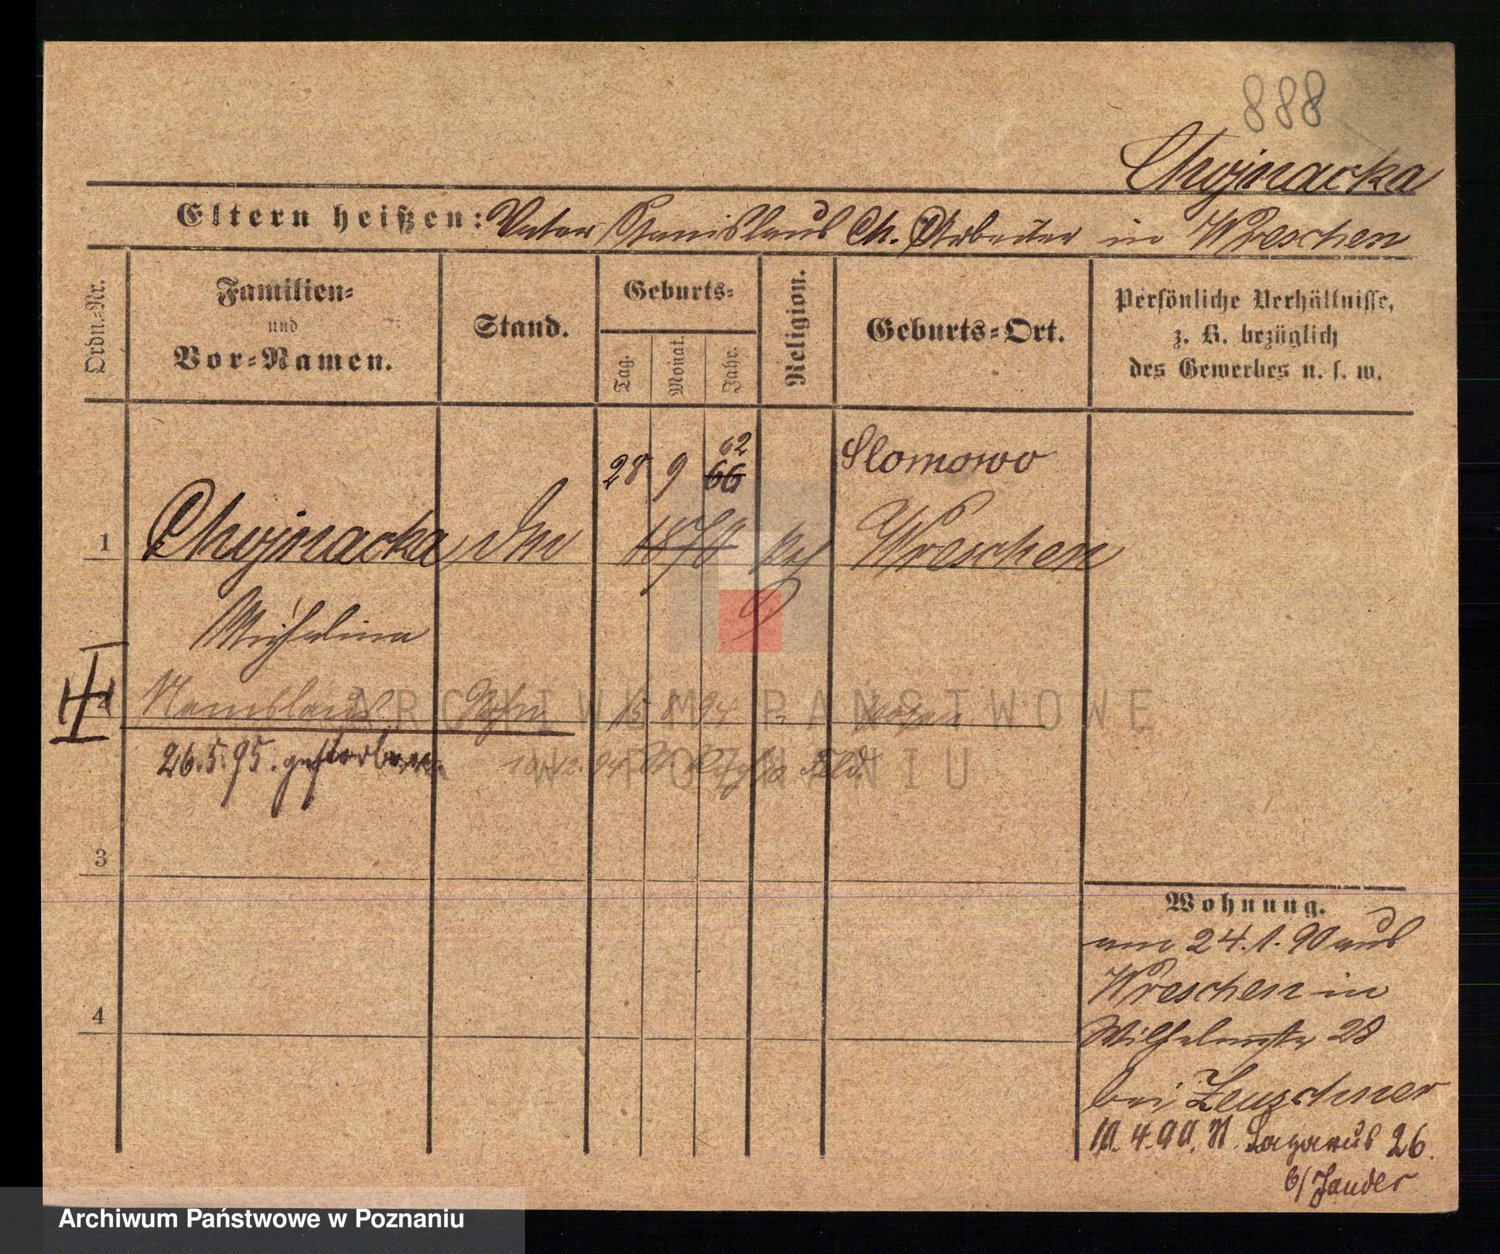 888
Chojnacka
Eltern heißen: Vater Stanislaus Ch. Arbeiter in Wreschen
Ordn.-Nr.
Familien-
und
Vor-Namen.
Stand.
Geburts-
Tag.
Monat.
Jahr.
Religion.
Geburts-Ort.
Persönliche Verhältnisse,
z. B. bezüglich
des Gewerbes u. s. w.
62
28 9 66 Slomowo
1 Chojnacka 1870 kath Wreschen
Michalina
2 Stanislaus Sohn 15 94
26.5.95. gestorben.
3
Wohnung.
am 24.1.90 aus
Wreschen in
4
Wilhelmstr 28
bei Zeuschner
10.4.90. St. Lazarus 26.
b/ Jander
ARCHIWUM PAŃSTWOWE
W POZNANIU
Archiwum Państwowe w Poznaniu